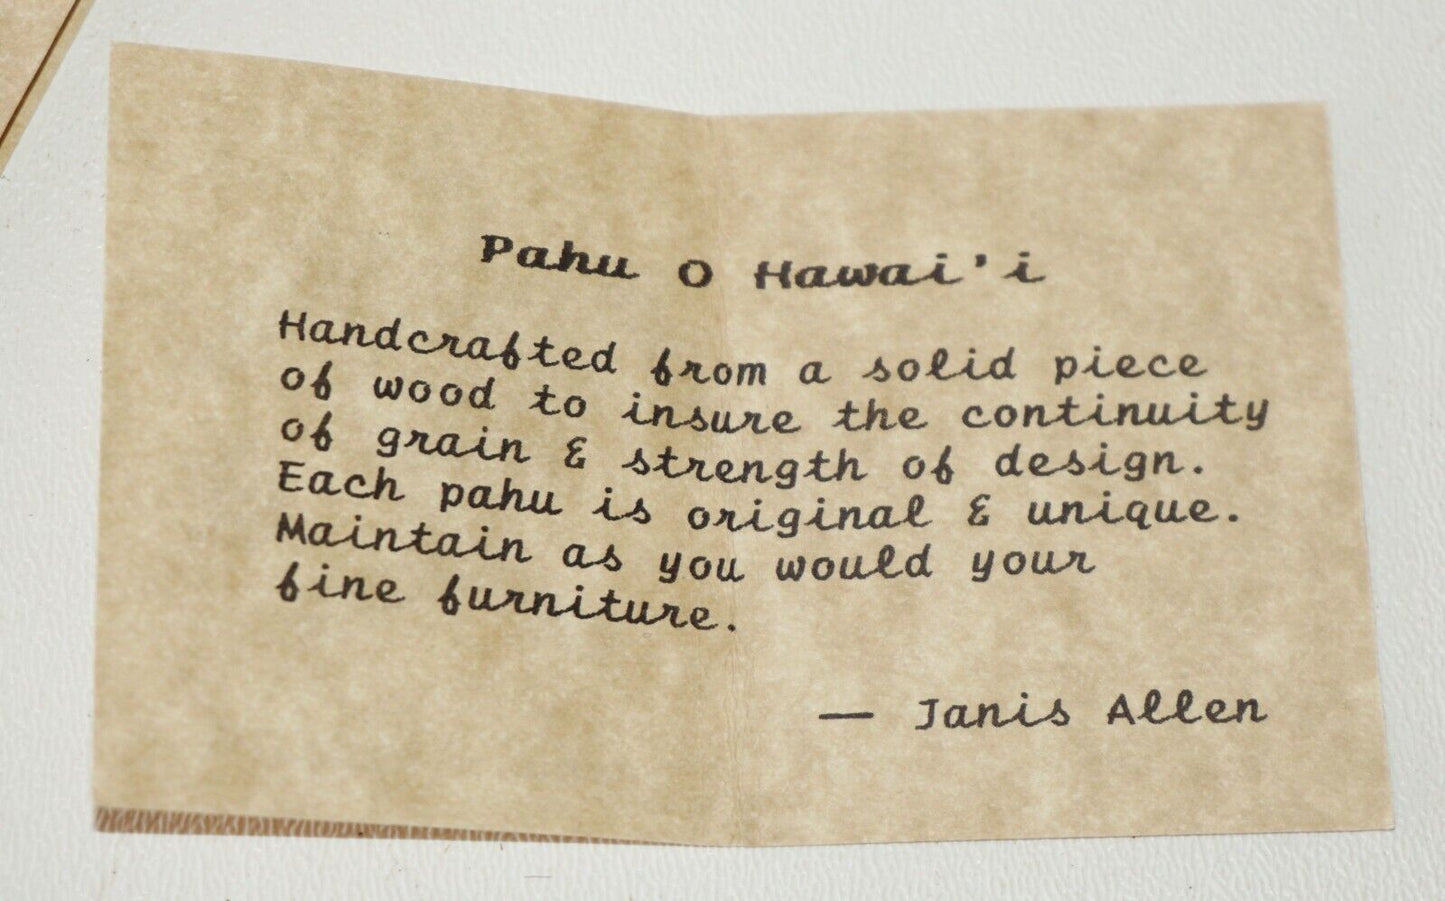 Pahu O Hawai'i
Handcrafted from a solid piece
of wood to insure the continuity
of grain & strength of design.
Each pahu is original & unique.
Maintain as you would your
fine furniture.
— Janis Allen